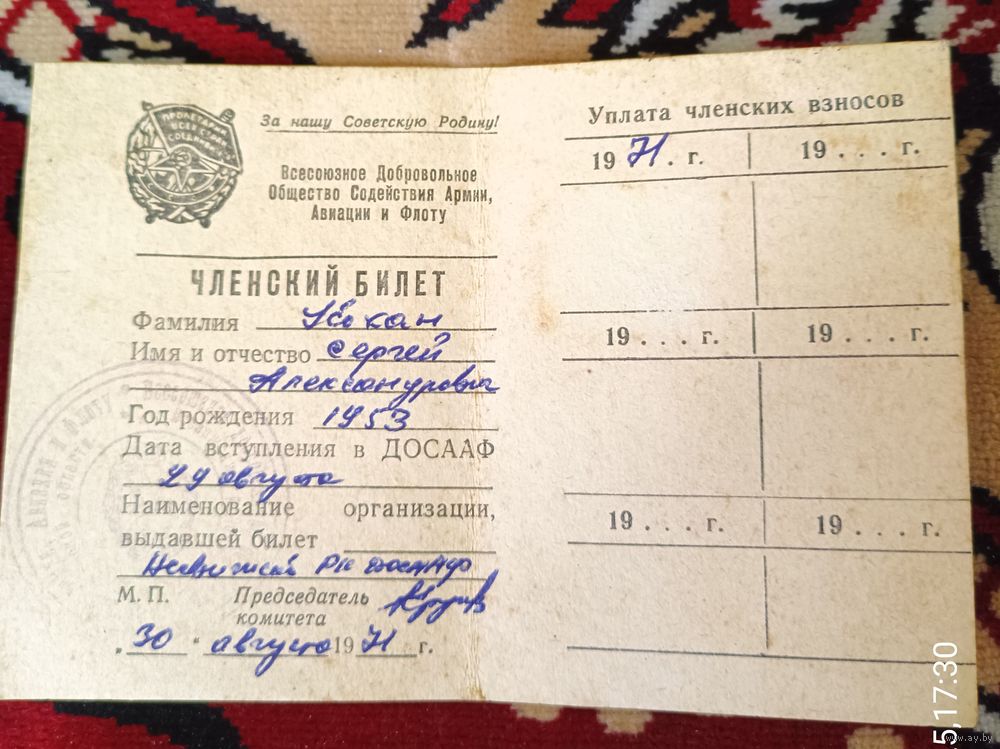 ПРОЛЕТАРИИ
ВСЕХ СТРАН
СОЕДИНЯЙТЕСЬ
За нашу Советскую Родину!
Всесоюзное Добровольное
Общество Содействия Армии,
Авиации и Флоту
ЧЛЕНСКИЙ БИЛЕТ
Фамилия
Имя и отчество Сергей
Александрович
Год рождения 1953
Дата вступления в ДОСААФ
29 августа
Наименование организации,
выдавшей билет
Несвижский РК ДОСААФ
М. П. Председатель
комитета
„30“ августа 1971 г.
Уплата членских взносов
1971. г. 19 . . . г.
19 . . . г. 19 . . . г.
19 . . . г. 19 . . . г.
5,17:30
www.ay.by